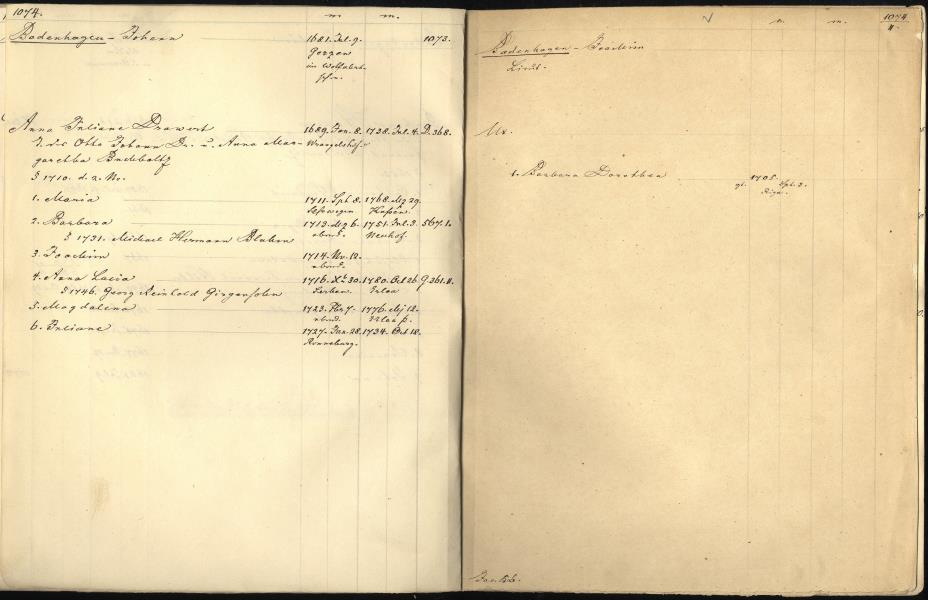 1074.
Badenhagen - Johann 1681. Jul. 9. 1073.
Gerzen
im Wolfenb.
Anna Juliane Drawert 1689. Jan. 8. 1738. Jul. 4. D. 368.
T. des Otto Johann Dr. u. Anna Mar- Wrangelshof.
garetha Buchholtz
§ 1710. d. 2. No.
1. Maria 1711. Spt 8. 1768. Mz 29.
2. Barbara 1713. Mz 6. 1751. Jul. 3. 567. 1.
§ 1731. Michael Hermann Bluhm ebend. Neuhof.
3. Joachim 1714. Nv. 12.
ebend.
4. Anna Lucia 1716. Xbr 30. 1780. Oct 26. G. 261. II.
§ 1746. Georg Reinhold Girgensohn Erlaa
5. Magdalena 1723. Fbr 7. 1776. Mz 12.
ebend. Erlaa p.
6. Juliane 1727. Jan. 28. 1734. Oct. 18.
Ronneburg.
1074
II.
Badenhagen - Joachim
Ux.
1. Barbara Dorothea 1705.
gt. Spt. 3.
Riga.